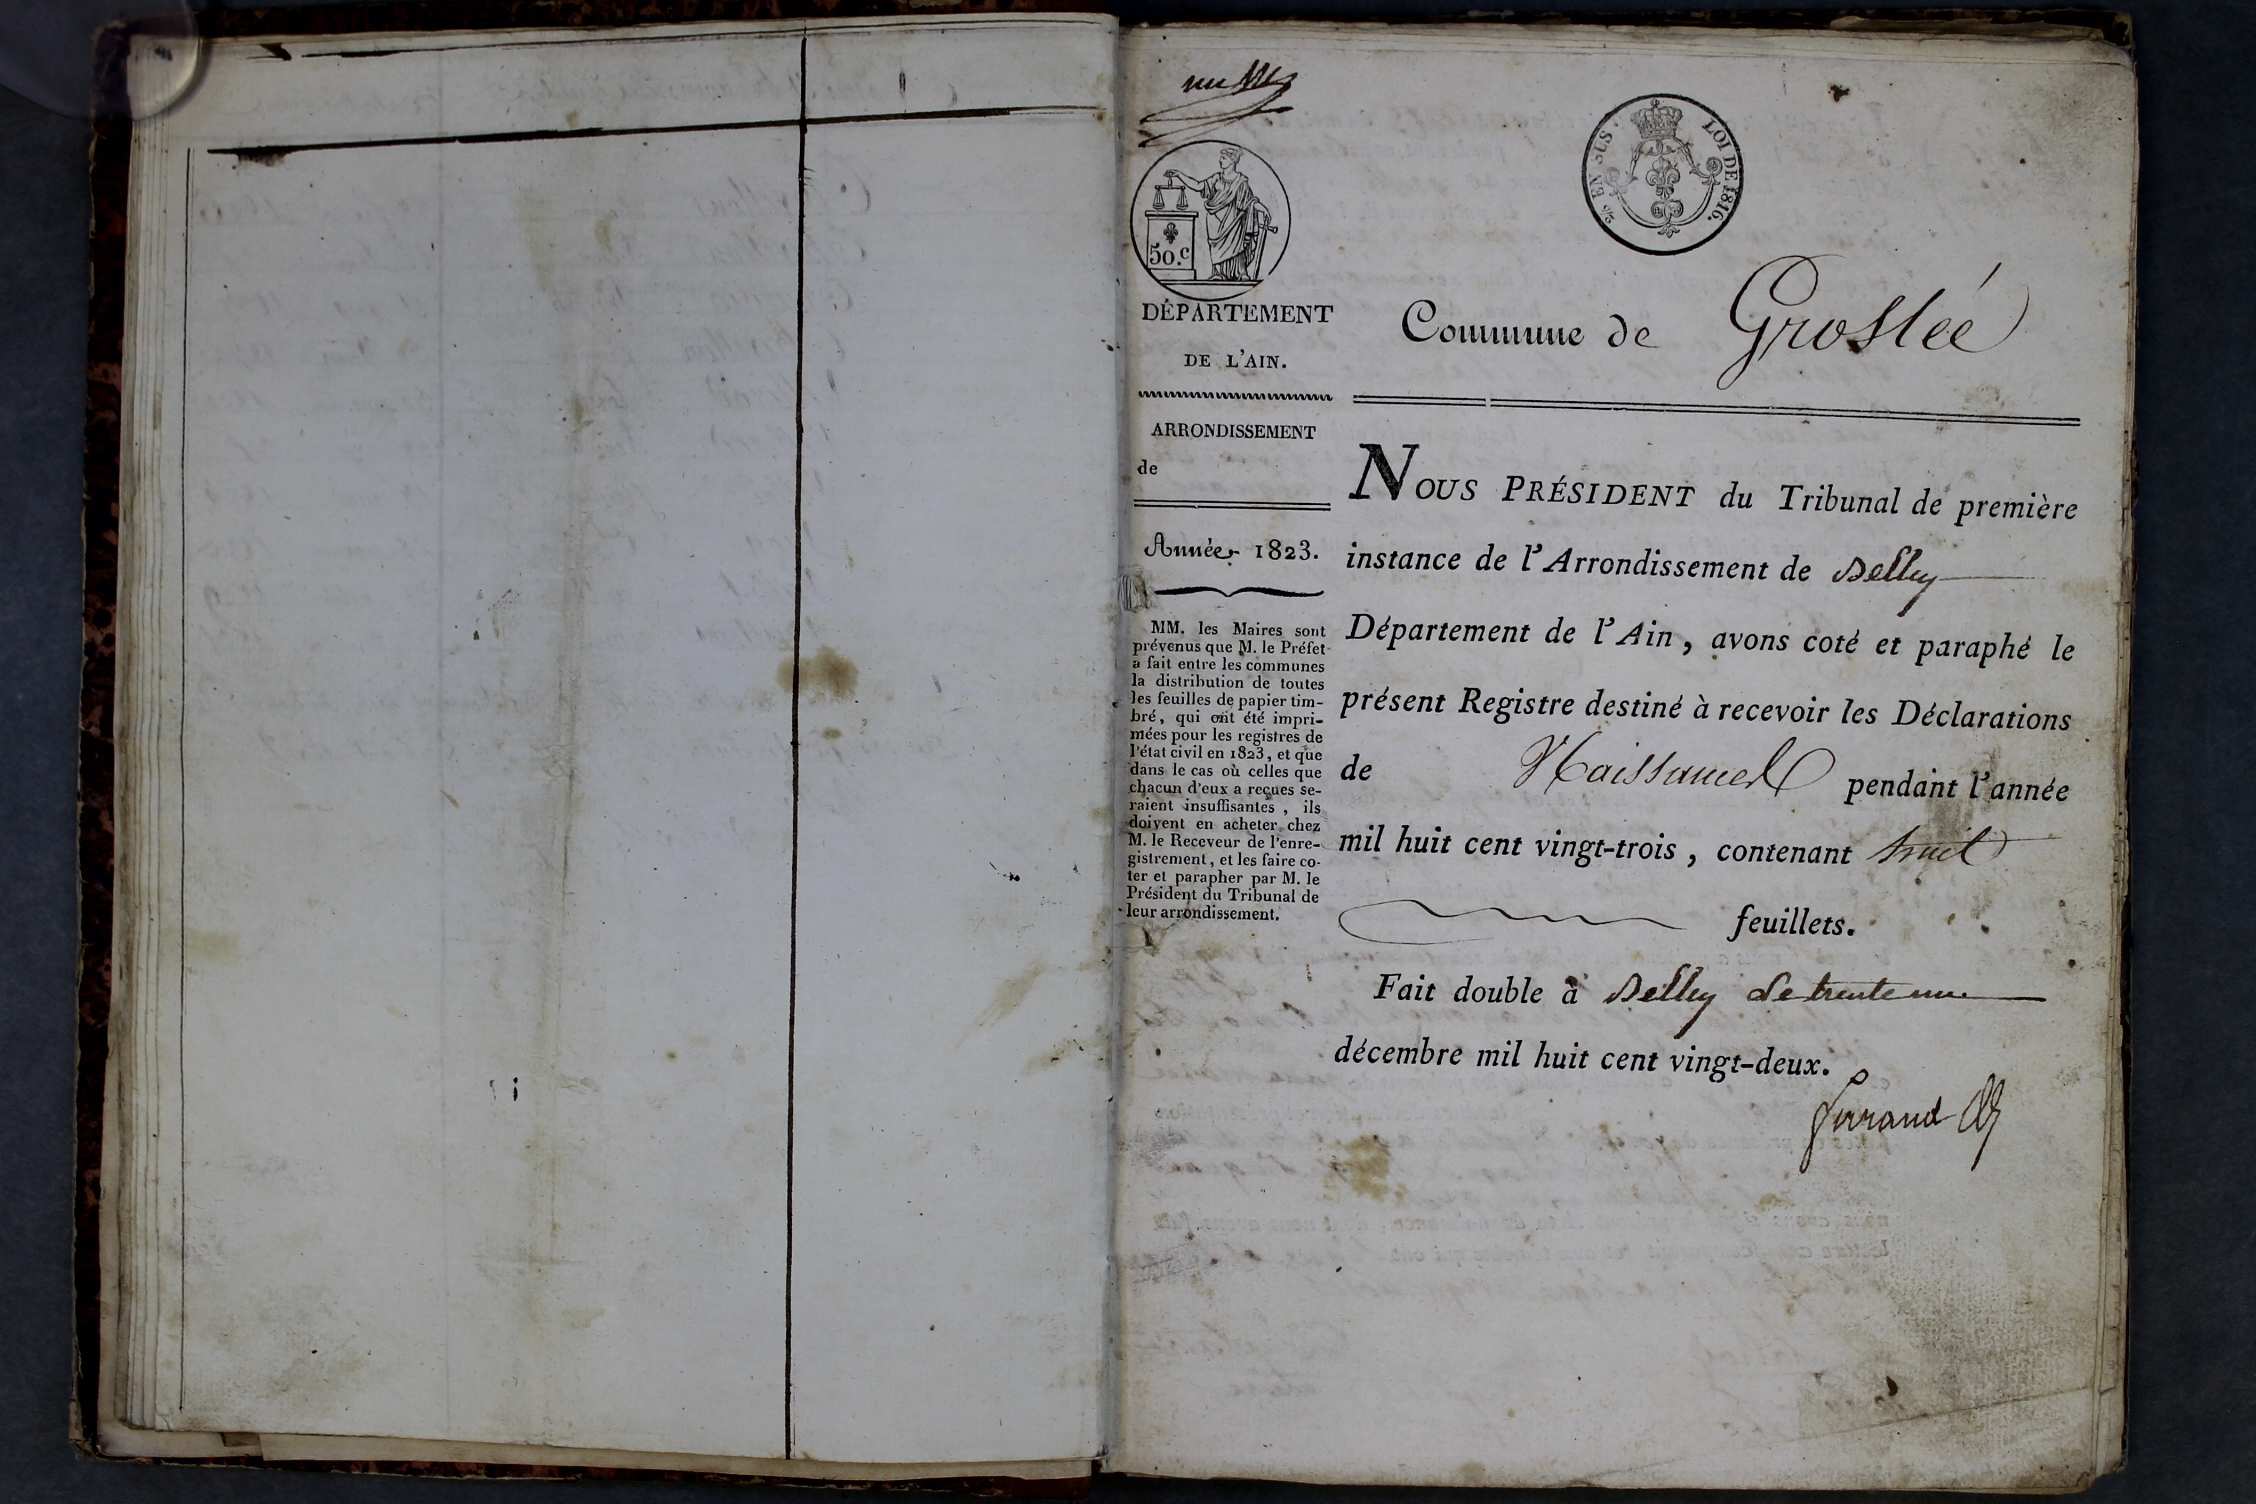 50.c
EN SUS. LOI DE 1816.
DÉPARTEMENT
DE L'AIN.
ARRONDISSEMENT
de
Année 1823.
MM. les Maires sont
prévenus que M. le Préfet
a fait entre les communes
la distribution de toutes
les feuilles de papier tim-
bré, qui ont été impri-
mées pour les registres de
l'état civil en 1823, et que
dans le cas où celles que
chacun d'eux a reçues se-
raient insuffisantes, ils
doivent en acheter chez
M. le Receveur de l'enre-
gistrement, et les faire co-
ter et parapher par M. le
Président du Tribunal de
leur arrondissement.
Commune de Groslée
NOUS PRÉSIDENT du Tribunal de première
instance de l'Arrondissement de Belley
Département de l'Ain, avons coté et paraphé le
présent Registre destiné à recevoir les Déclarations
de Naissances pendant l'année
mil huit cent vingt-trois, contenant huit
feuillets.
Fait double à Belley le trente un
décembre mil huit cent vingt-deux.